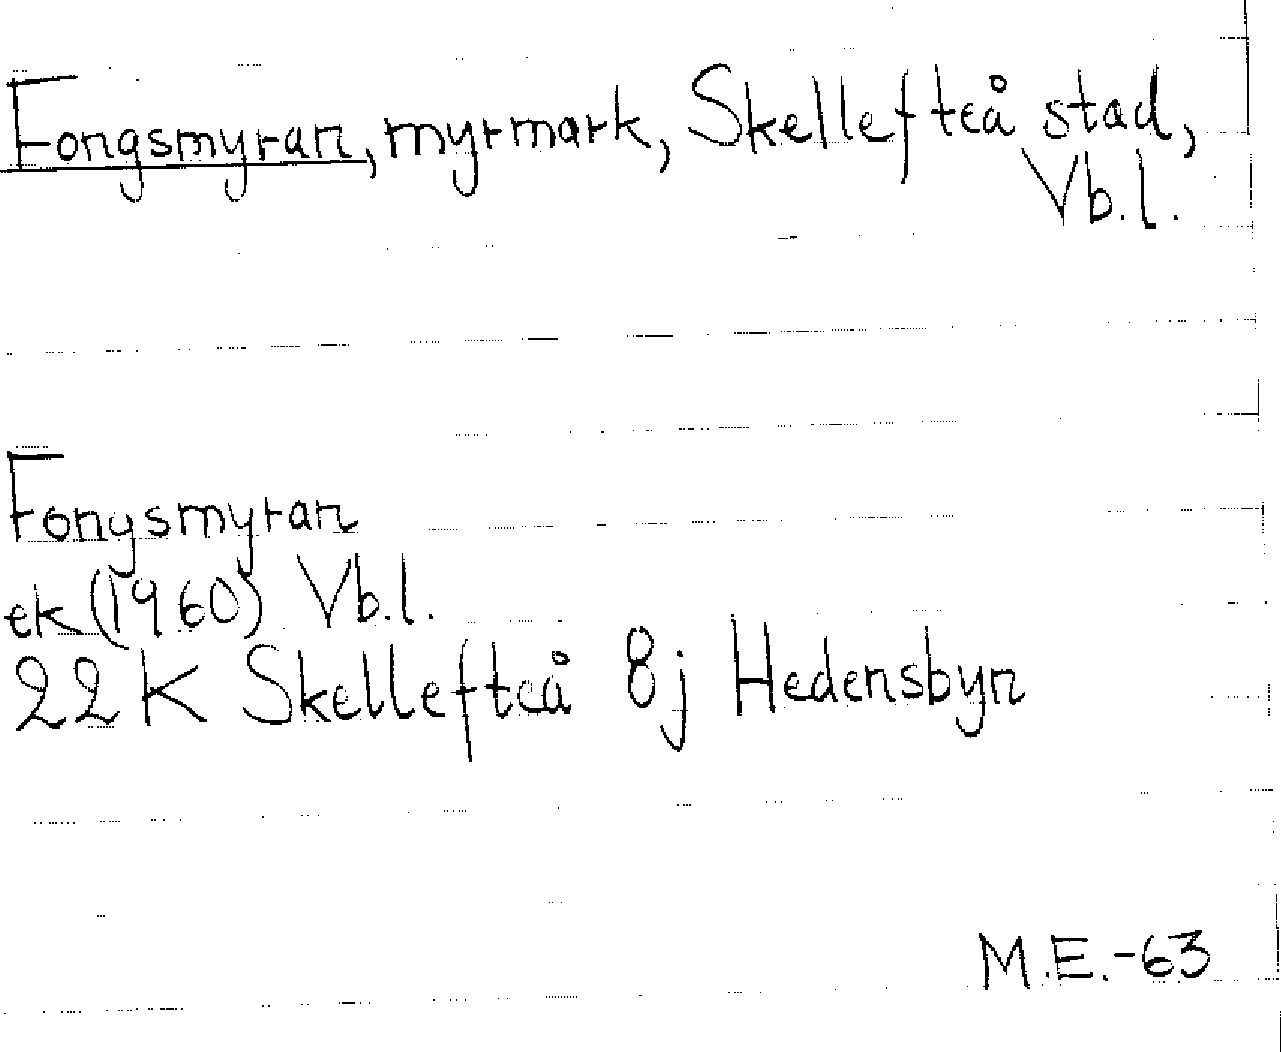 Fongsmyran, myrmark, Skellefteå stad,
Vb.l.
Fongsmyran
ek (1960) Vb.l.
22K Skellefteå 8j Hedensbyn
M.E.-63